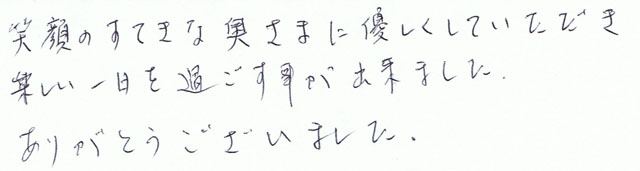 笑顔のすてきな奥さまに優しくしていただき
楽しい一日を過ごす事が出来ました.
ありがとうございました.